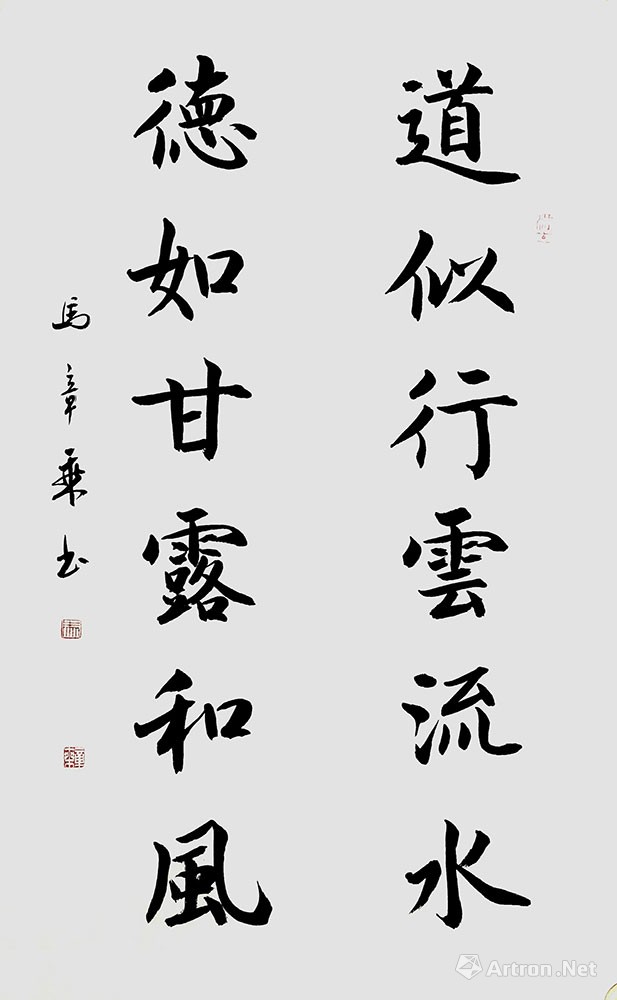 道似行雲流水
德如甘露和風
馬章乘书
Artron.Net